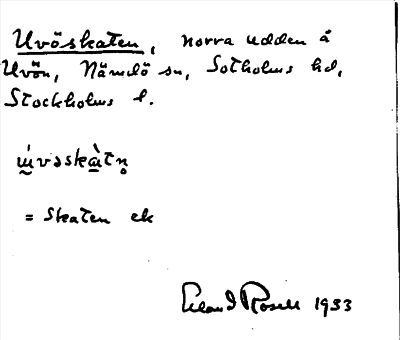 Uvöskaten, norra udden å
Uvön, Nämdö sn, Sotholms hd,
Stockholms l.
ɯ́vɘskɑ̀tn̥
= Skaten ek
Erland Rosell 1933